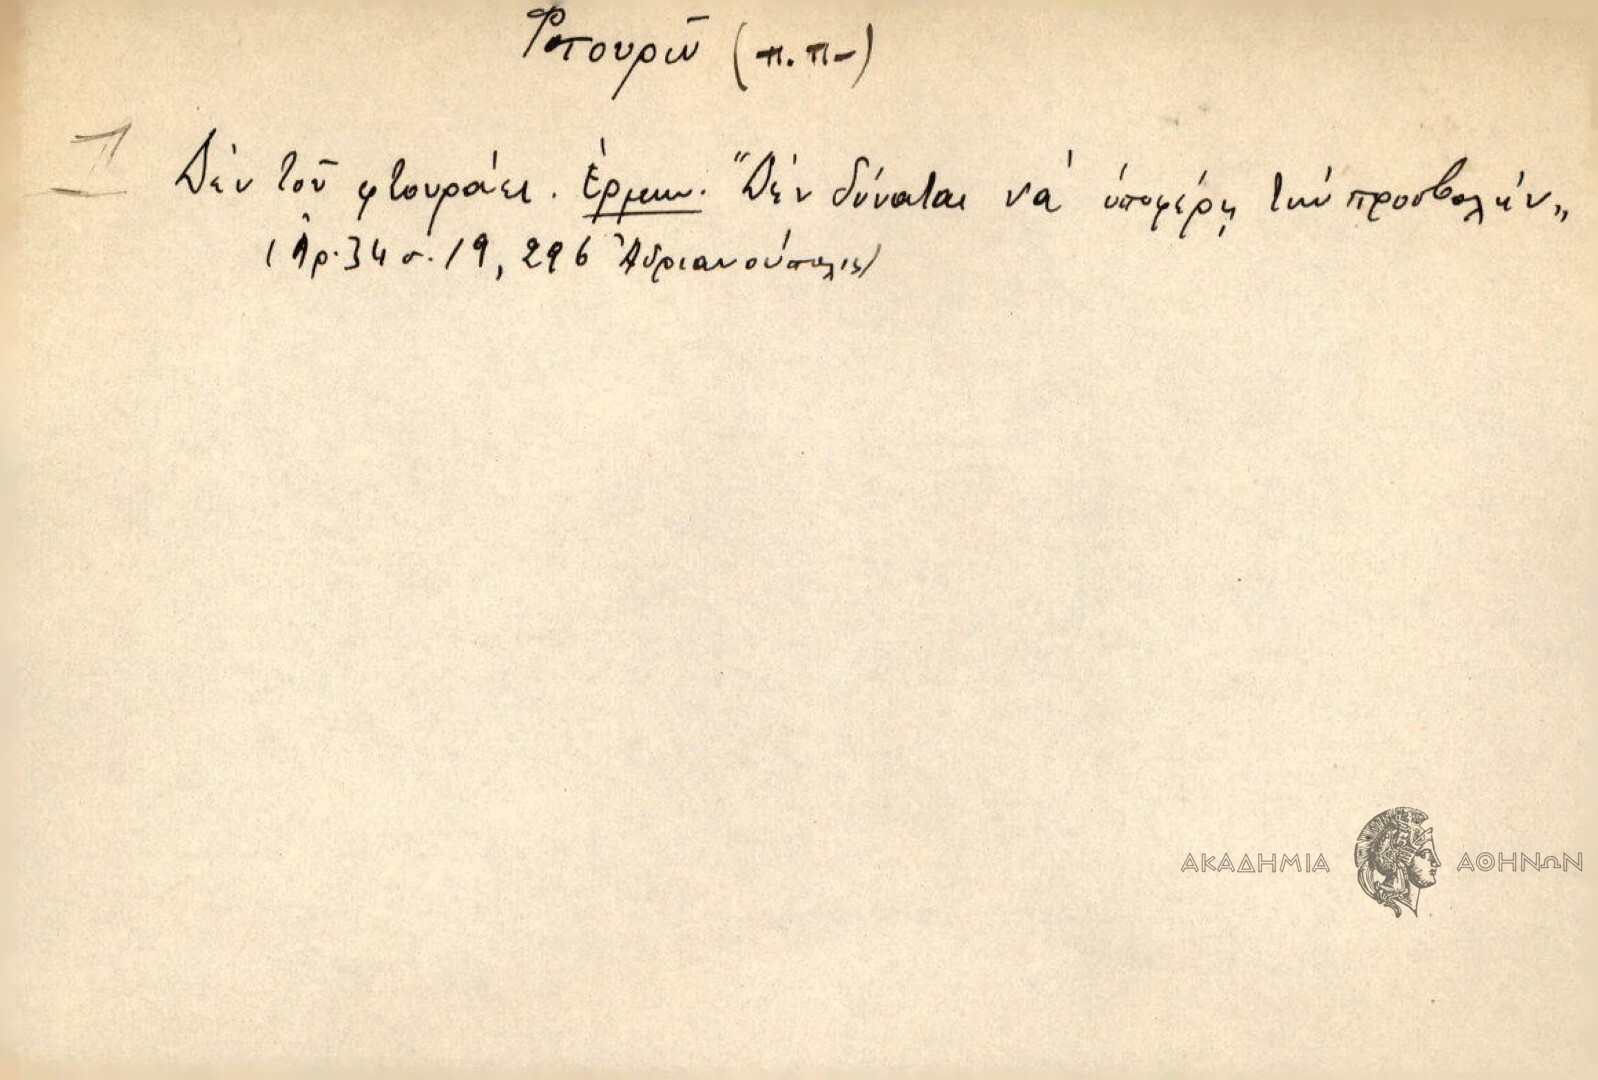 Φτουρῶ (π.π-)
1 Δὲν τοῦ φτουράει. Ἑρμην. "Δὲν δύναται νὰ ὑποφέρῃ τὴν προσβολήν„
(Ἀρ. 34 σ. 19, 296 Ἀδριανούπολις)
ΑΚΑΔΗΜΙΑ ΑΘΗΝΩΝ